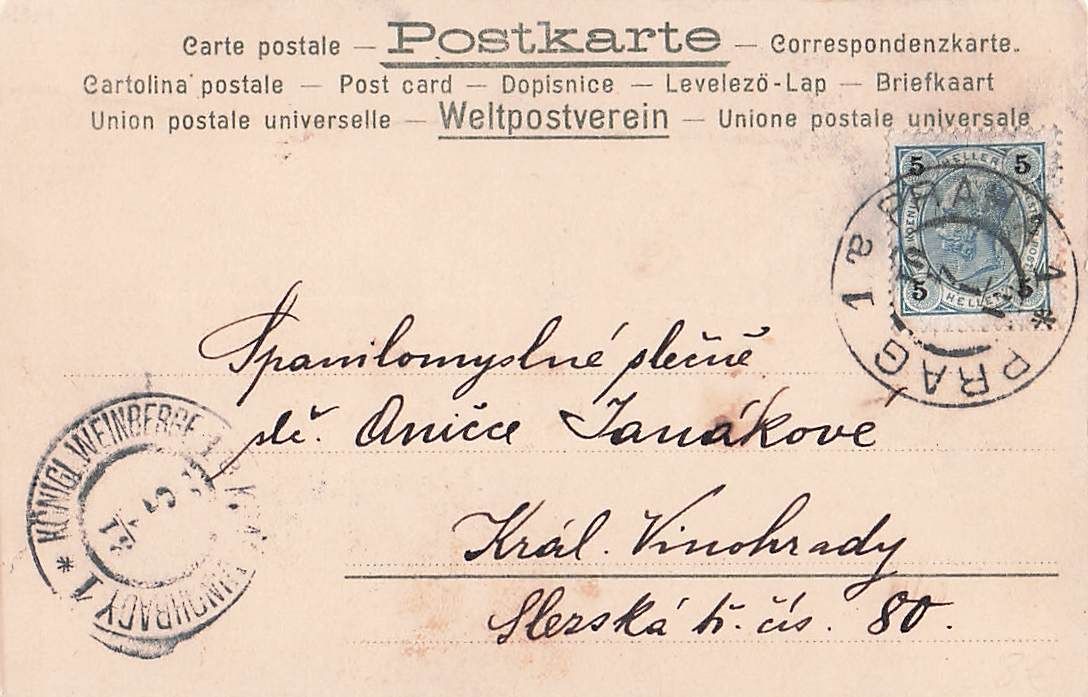 Carte postale — Postkarte — Correspondenzkarte.
Cartolina postale — Post card — Dopisnice — Levelező-Lap — Briefkaart
Union postale universelle — Weltpostverein — Unione postale universale
5 HELLER 5
5 HELLER 5
PRAHA 1
* PRAG 1
Spanilomyslné slečně
slč. Aničce Janákové
KÖNIGL. WEINBERGE 1
VINOHRADY 1 *
Král. Vinohrady
Slezská tř. čís. 80.